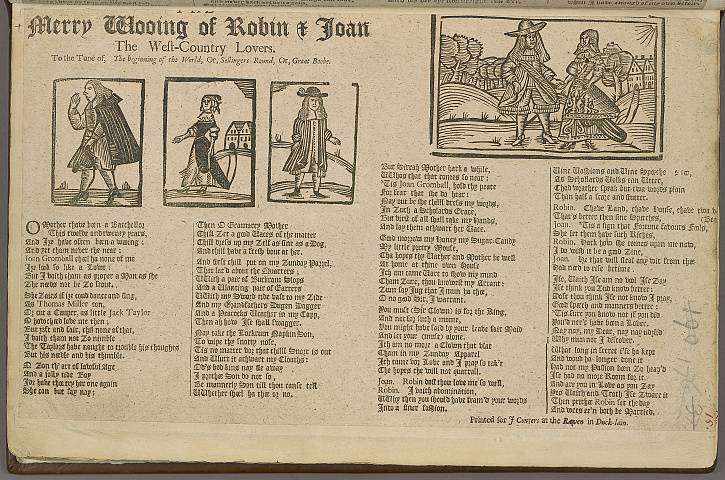 Merry Wooing of Robin & Joan
The West-Country Lovers.
To the Tune of, The beginning of the World, Or, Sellingers Round, Or, Great Boobe.
O Mother chave been a Batchellor
This twelve and twenty years,
And Ize have often been a wooing:
And yet cham never the near:
Joan Gromball chal ha none of me
Ize look so like a Lowt:
But I vaith cham as proper a Man as she
Zhe needs not be Zo stout.
She Zaies if ize coud dance and sing,
As Thomas Miller con,
Or cut a Cauper, as little Jack Taylor
O how shed love me then;
But zoft and fair, chil none of that,
I vaith cham not Zo nimble
The Taylors have nought to trouble his thoughts
But his needle and his thimble.
O Zon th'art of lawful Age
And a jolly tide Boy
Ide have tha try her one again
She can but say nay;
Then O Grammercy Mother
Chill Zet a good Vaces of the matter
Chill dress up my Zelf as fine as a Dog,
And chill have a fresh bout at her.
And first chill put on my Zunday Parrel,
That lac'd about the Quarters;
With a pair of Buckram Slops
And a vlanting pair of Garters
With my Sword tide vast to my Zide
And my Grandfathers Dugen Dagger
And a Peacocks Veather in my Capp,
Then ah how Ise shall swagger.
Nay take thee a Lockrum Napkin Son,
To wipe thy snotty nose,
Tis no matter vor that chill Snort it out
And vlurt it athwart my Cloaths:
Od's bod kins nay fie away
I prethee Son do not so,
be mannerly Son till thou canst tell
Whether sheel ha thee or no.
But Sirrah Mother hark a while,
Whos that that comes so near:
'Tis Joan Gromball, hold thy peace
For fear that she do hear:
Nay out be she chill dress my words,
In Zuch a Schollards Grace,
But virst of all shall take my hands,
And lay them athwart her Vace.
Good morrow my Honey my Sugar-Candy
My little pretty Mouse,
Cha hopes thy Vather and Mother be well
At home at thine own House
Ich am come Vlare to show my mind
Cham Zure, thou knowest my Arrant:
Zum say Jug that I mun ha thee,
O no good Sir, I warrant.
You must (Sir Clown) is for the King,
And not for such a mome,
You might have said by your leave fair Maid
And let your (come) alone.
Ich am no more a Clown that vlat
Cham in my Zunday Apparel
Ich came vor Love and I pray so tak't
Che hopes che will not quarrel.
Joan. Robin dost thou love me so well,
Robin. I vaith abomination,
Why then you should have fram'd your words
Into a finer fashion.
Vine Vashions and Vine Speeche
As Schollards Volks can Utter,
Chad wrather speak but twa words plain
Than half a score and stutter.
Robin. Chave Land, chave House, chave twa
That's better then fine Speeches,
Joan. 'Tis a sign that Fortune favours Fools,
She let them have such Riches.
Robin. Hark how she comes upon me now,
I do wish it be a good Zine,
Joan. He that will steal any wit from thee
Had need to rise betime.
Ise, Vaith Ise am no vool Ise Zay
Ise think you Zud know better:
Dost thou think Ise not know I pray,
Good speech and manners better:
'Tis sure you know not if you did
You'd ner'e have been a Lover.
Nay nay, my Dear, nay nay udslid
Why mun not I discover.
What long in secret i'se ha kept
And woud ha longer done it
had not my Passion been Zo heap'd
Ise had no more Room for it.
And are you in Love as you Zay
Yes Vaith and Troth Ise Zware it
Then prethee Robin set the day
And wees ee'n both be Married.
Printed for J Conyers at the Raven in Duck-lain.